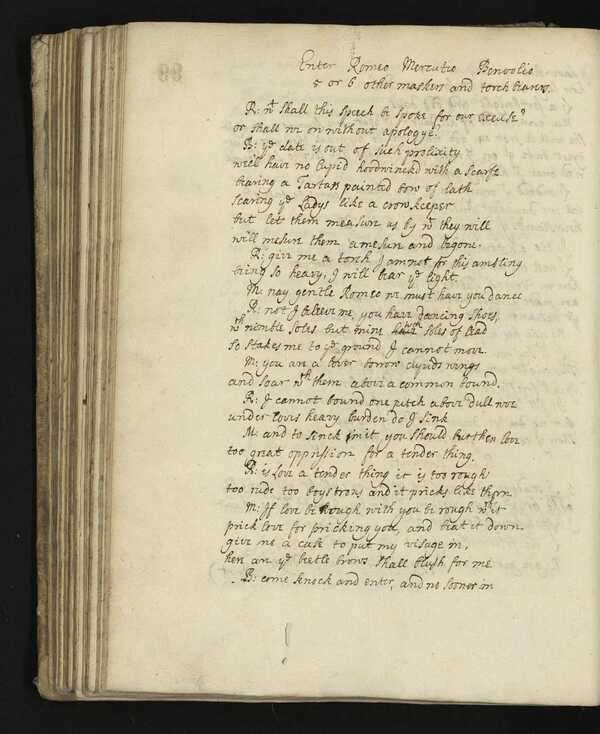 Enter Romeo Mercutio Benvolio
5 or 6 other maskers and torch bearers.
R: wt shall this speech be spoke for our excuse?
or shall we on without apologye?
B: ye date is out of such prolixity
weell have no Cupid hoodwinckd with a scarfe
bearing a Tartars painted bow of lath
scaring ye Ladys like a crow keeper
but let them measure us by wt they will
will mesure them a mesure and begone.
R: give me a torch I am not for this ambling
being so heavy, I will bear ye light.
M: nay gentle Romeo we must have you dance
R: not I beleeve me, you have dancing shoes,
wth nimble soles but mine with soles of lead
so stakes me to ye ground I cannot move.
M: you are a lover borrow cupids wings
and soar wth them above a common bound.
R: I cannot bound one pitch above dull woe
under loves heavy burden do I sink
M: and to sinck in it you should burthen love
too great oppression for a tender thing.
R: is Love a tender thing it is too rough
too rude too boystrous and it pricks like thorn
M: If love be rough with you be rough wth it
prick love for pricking you, and beat it down.
give me a case to put my visage in,
here are ye beetle brows shall blush for me
B: come knock and enter, and no sooner in